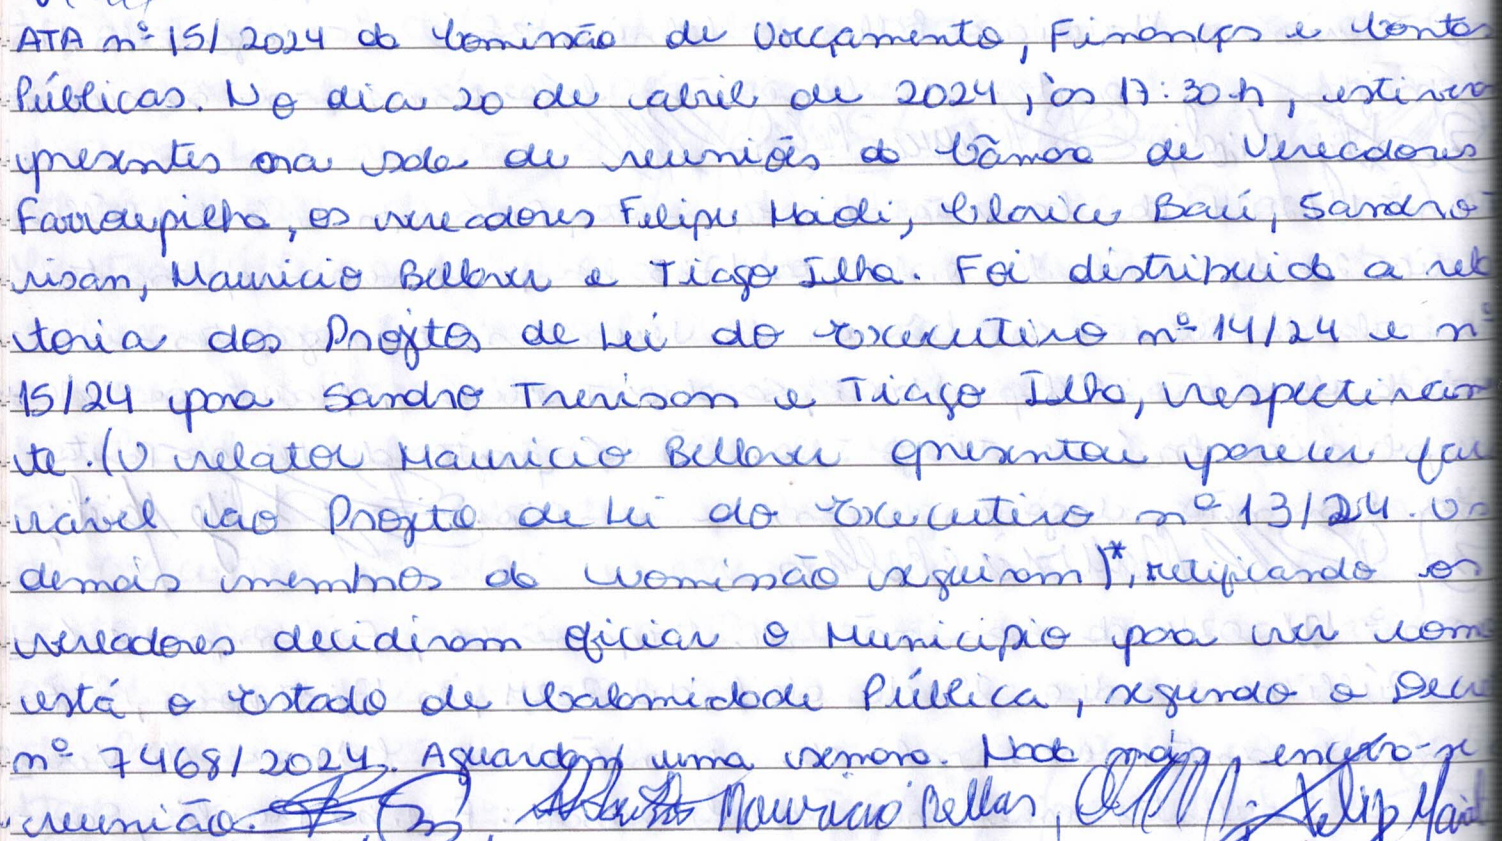 ATA nº 15/2024 da Comissão de Orçamento, Finanças e Contas
Públicas. No dia 20 de abril de 2024, às 17:30h, estiveram
presentes na sala de reuniões da Câmara de Vereadores
Farroupilha, os vereadores Felipe Maioli, Clarice Baú, Sandro
visan, Mauricio Bellaver e Tiago Ilha. Foi distribuida a rela
toria dos Projetos de Lei do Executivo nº 14/24 e nº
15/24 para Sandro Trevison e Tiago Ilha, respectivamen
te. (O relator Mauricio Bellaver apresentou parecer favo
rável ao Projeto de Lei do Executivo nº 13/24. Os
demais membros da comissão seguiram)*, retificando os
vereadores decidiram oficiar o Municipio para ver como
está o Estado de Calamidade Pública, segundo o Decre
nº 7468/2024. Aguardam uma semana. Nada mais, encerro-se
reunião. Mauricio Bellav, Felip Maiol